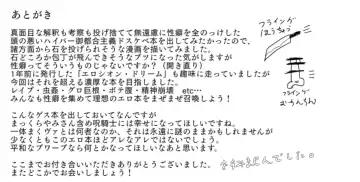 あとがき
真面目な解釈も考察も投げ捨てて無遠慮に性癖を全のっけした
頭の悪いハイパー御都合主義ドスケベ本が出してみたかったので、
諸方面から石を投げられそうな漫画を描いてみました。
石どころか包丁が飛んできそうなブツになった気がしますが
性癖ってそういうものじゃないですか？（開き直り）
1年前に発行した「エロシオン・ドリーム」も趣味に走っていましたが
今回はそれを超える濃厚な本を目指しました。
レイプ・虫姦・グロ巨根・ボテ腹・精神崩壊　etc…
みんなも性癖を集めて理想のエロ本をまぜまぜ召喚よう！
こんなゲス本を出しておいてなんですが
まっくらやみさん含め呪騎士には幸せになってほしいですね。
一体まくヴァとは何者なのか、それは永遠に謎のままかもしれませんが
少なくともこのエロ本ほどアレなアレではないでしょう。
平和なグローブなら何とかなってほしいなあと思います。
ここまでお付き合いいただきありがとうございました。
またどこかでお会いしましょう！
フライング
ほうちょう
フライング
すみませんでした。